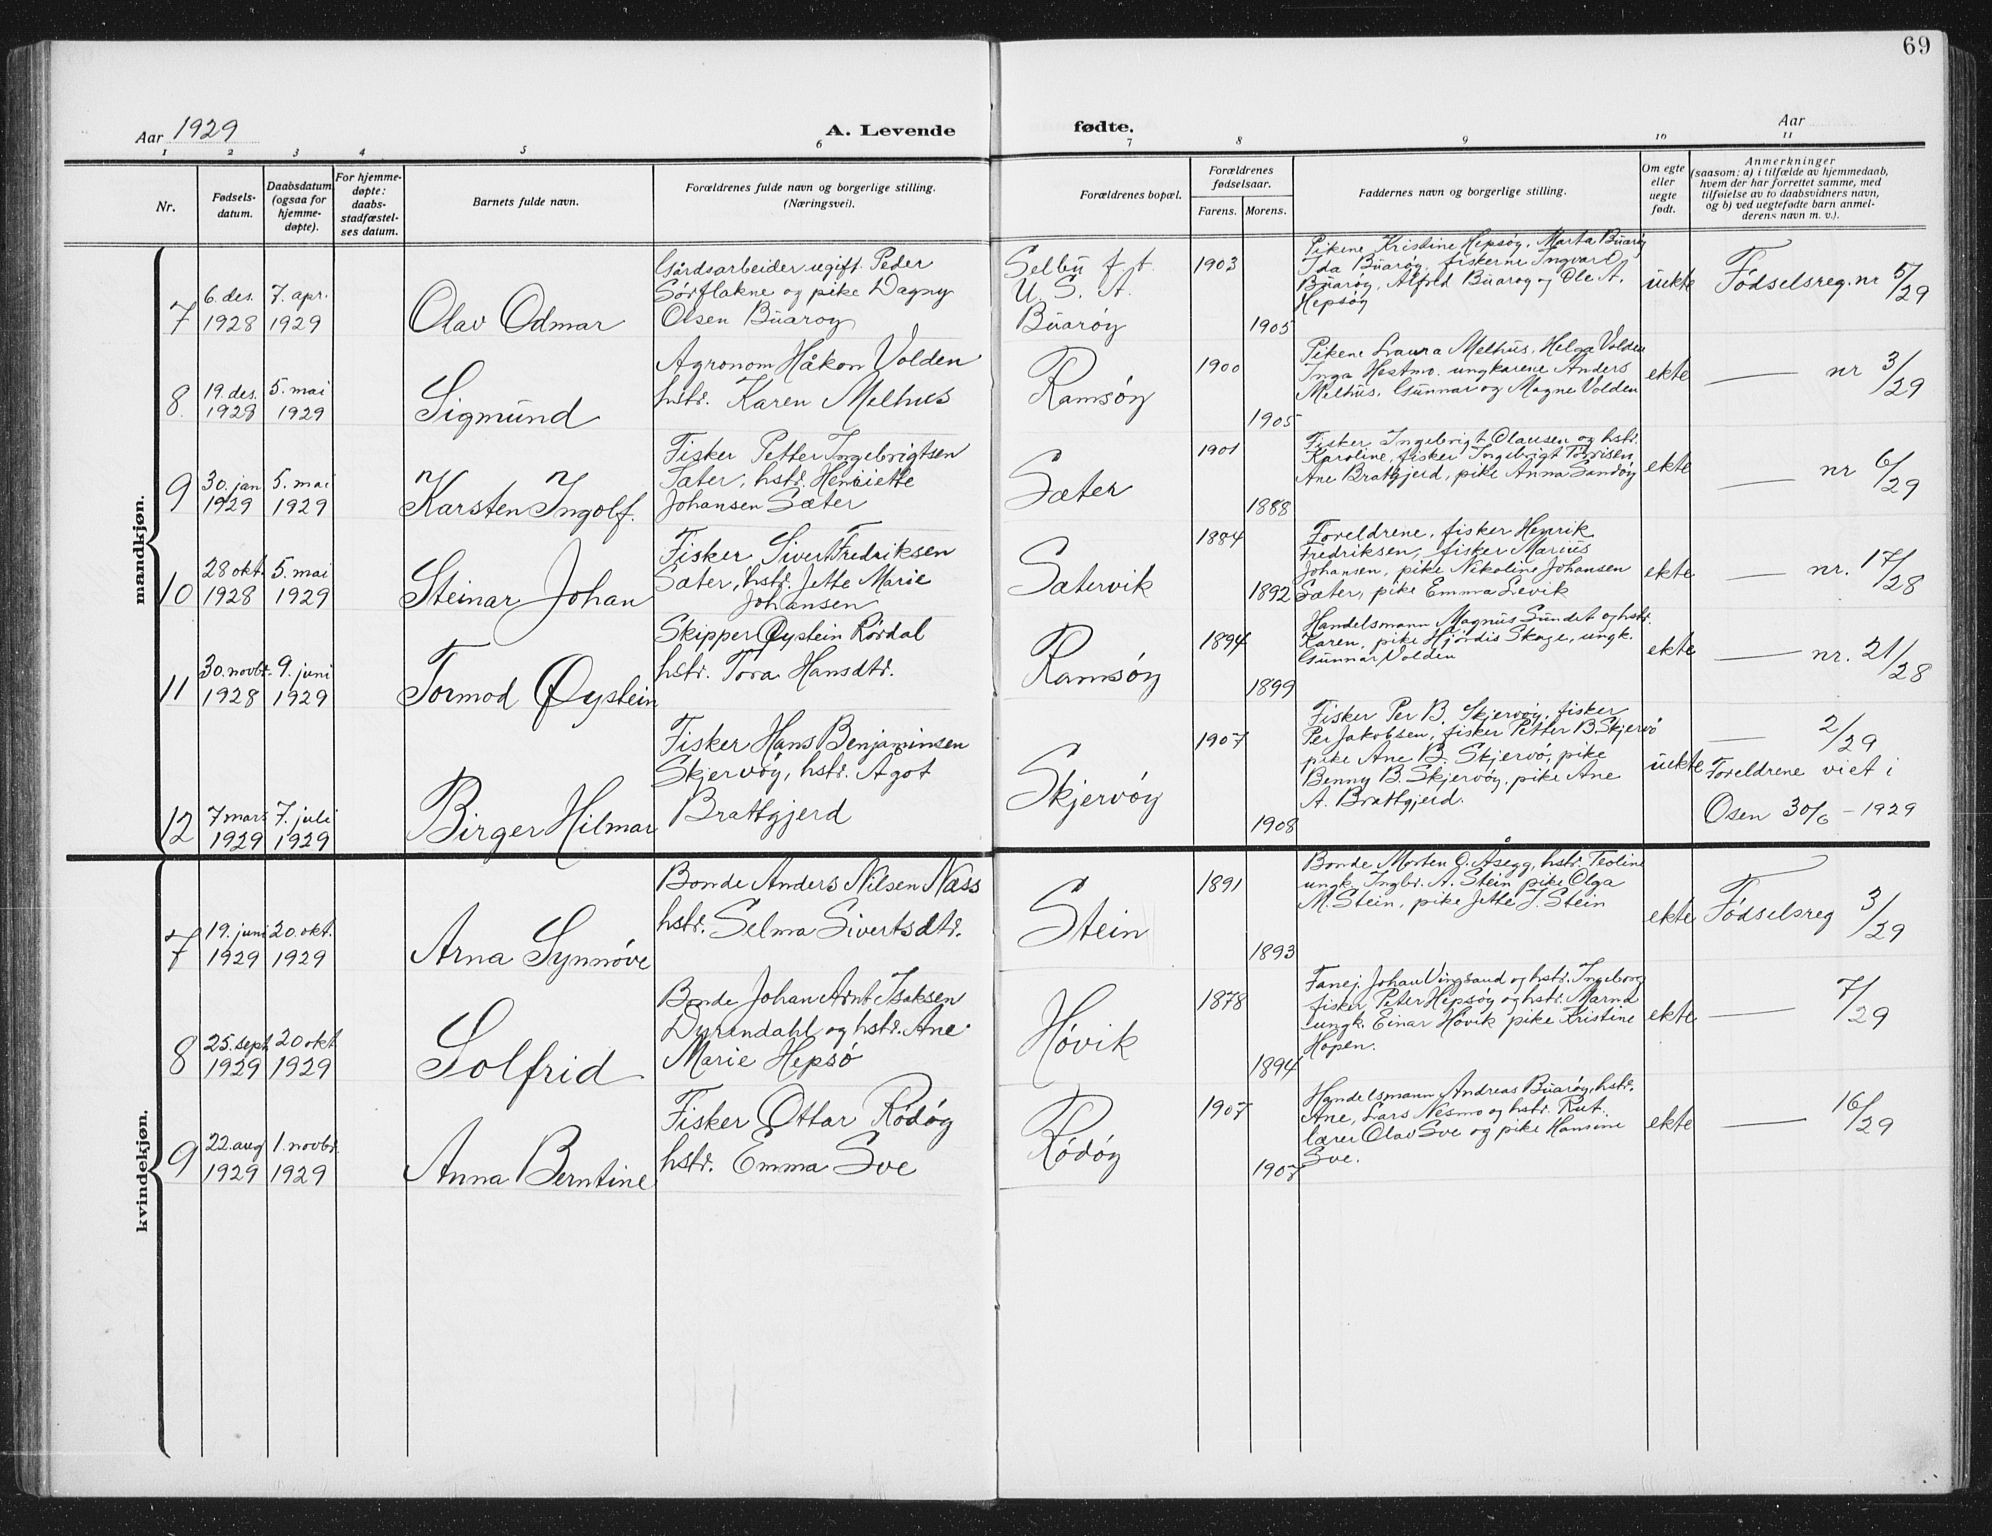 69
Aar 1929
A. Levende
fødte.
Aar
1 2 3 4 5 6 7 8 9 10 11
Nr.
Fødsels-
datum.
Daabsdatum
(ogsaa for
hjemme-
døpte).
For hjemme-
døpte:
daabs-
stadfæstel-
ses datum.
Barnets fulde navn.
Forældrenes fulde navn og borgerlige stilling.
(Næringsvei).
Forældrenes bopæl.
Forældrenes
fødselsaar.
Farens. Morens.
Faddernes navn og borgerlige stilling.
Om egte
eller
uegte
født.
Anmerkninger
(saasom: a) i tilfælde av hjemmedaab,
hvem der har forrettet samme, med
tilføielse av to daabsvidners navn,
og b) ved uegtefødte barn anmel-
derens navn m. v.).
mandkjøn.
7
6. des.
1928
7. apr.
1929
Olav Odmar
Gårdsarbeider ugift Peder
Sörflakne og pike Dagny
Olsen Buarøy
Selbu f. t.
U. S. A.
Buarøy
1903
1905
Pikene Kristine Hepsøy, Marta Buarøy
Ida Buarøy, fiskerne Ingvar O.
Buarøy, Alfred Buarøy og Ole A.
Hepsøy
uekte
Fødselsreg. nr 5/29
8
19. des.
1928
5. mai
1929
Sigmund
Agronom Håkon Volden
hstr. Karen Melhus
Ramsöy
1900
1905
Pikene Laura Melhus, Helga Volden
Inga Hestmo. ungkarene Anders
Melhus, Gunnar og Magne Volden
ekte
— nr 3/29
9
30. jan
1929
5. mai
1929
Karsten Ingolf.
Fisker Petter Ingebrigtsen
Sæter, hstr. Henriette
Johansen Sæter
Sæter
1901
1888
Fisker Ingebrigt Olausen og hstr.
Karoline, fisker Ingebrigt
Ane Brattgjerd, pike Anna Sandøy
ekte
— nr 6/29
10
28 okt.
1928
5. mai
1929
Steinar Johan
Fisker Sivert Fredriksen
Sæter, hstr. Jette Marie
Johansen
Sætervik
1884
1892
Foreldrene, fisker Henrik
Fredriksen, fisker Marius
Johansen, pike Nikoline Johansen
Sæter, pike Emma Levik
ekte
— nr. 17/28
11
30. novbr.
1928
9. juni
1929
Tormod Øystein
Skipper Øystein Rørdal
hstr. Tora Hansdtr.
Ramsöy
1894
1899
Handelsmann Magnus Sundet og hstr.
Karen, pike Hjørdis Skage, ungk.
Gunnar Volden
ekte
— nr. 21/28
12
7 mars
1929
7. juli
1929
Birger Hilmar
Fisker Hans Benjaminsen
Skjervøy, hstr. Agot
Brattgjerd
Skjervöy
1907
1908
Fisker Per B. Skjervøy, fisker
Per Jakobsen, fisker Petter B. Skjervö
pike Ane B. Skjervö, pike
Benny B. Skjervöy, pike Ane
A. Brattgjerd.
uekte
— 2/29
Foreldrene viet i
Osen 30/6 - 1929
kvindekjøn.
7
19. juni
1929
20. okt.
1929
Arna Synnöve
Bonde Anders Nilsen Næss
hstr. Selma Sivertsdtr.
Stein
1891
1893
Bonde Morten O. Åsegg, hstr. Teoline
ungk. Ingbr. A. Stein pike Olga
M. Stein, pike Jette J. Stein
ekte
Fødselsreg 3/29
8
25. sept.
1929
20 okt.
1929
Solfrid
Bonde Johan Arnt Isaksen
Dyrendahl og hstr. Ane
Marie Hepsö
Hóvik
1878
1894
Fanej. Johan Vingsand og hstr. Ingeborg
fisker Peter Hepsøy og hstr. Marna
ungk. Einar Hövik pike Kristine
Hopen.
ekte
— 7/29
9
22. aug
1929
1. novbr.
1929
Anna Berntine
Fisker Ottar Rödöy
hstr. Emma Sve
Rödöy
1907
1907
Handelsmann Andreas Buarøy, hstr.
Ane, Lars Nesmo og hstr. Rut.
lærer Olav Sve og pike Hansine
Sve.
ekte
— 16/29